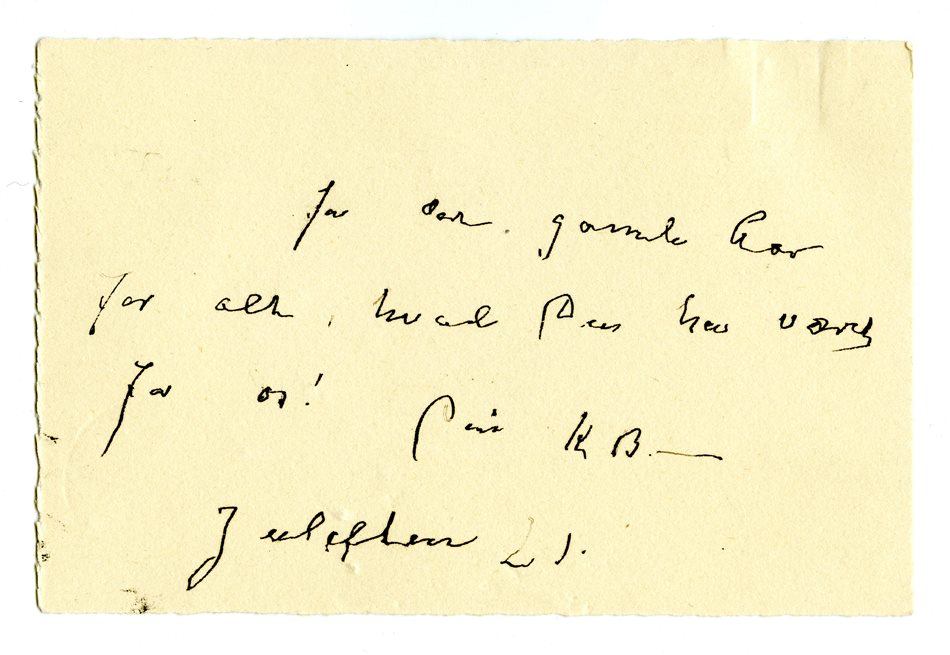 for det gamle Aar
for alt, hvad De har været
for os!   Din K B.
Juleaften 21.